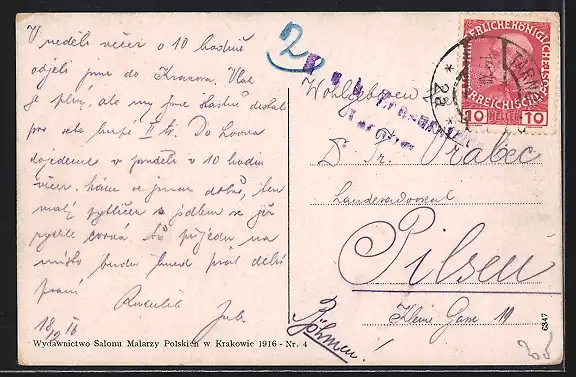 V neděli večer o 10 hodině
odjeli jsme do Krakova. Vlak
je plný, ale my jsme šťastně dostali
pro sebe kupé II tř. Do Lvova
dojedeme v pondělí v 10 hodin
večer. Máme se jinak dobře, ten
malý s jídlem se již
rychle . Až přijedu na
místo budu hned psát delší
psaní
Jub.
18/9 16
Wydawnictwo Salonu Malarzy Polskich w Krakowie 1916 - Nr. 4
2
K. u. k. Zensurstelle
Tarnów
KAISERLICHE KÖNIGLICHE
ÖSTERREICHISCHE POST
10 HELLER 10
TARNÓW
Wohlgeboren
Dr Fr. Vrabec
Landesadvokat
Pilsen
Kleine Gasse 11
Böhmen!
6347